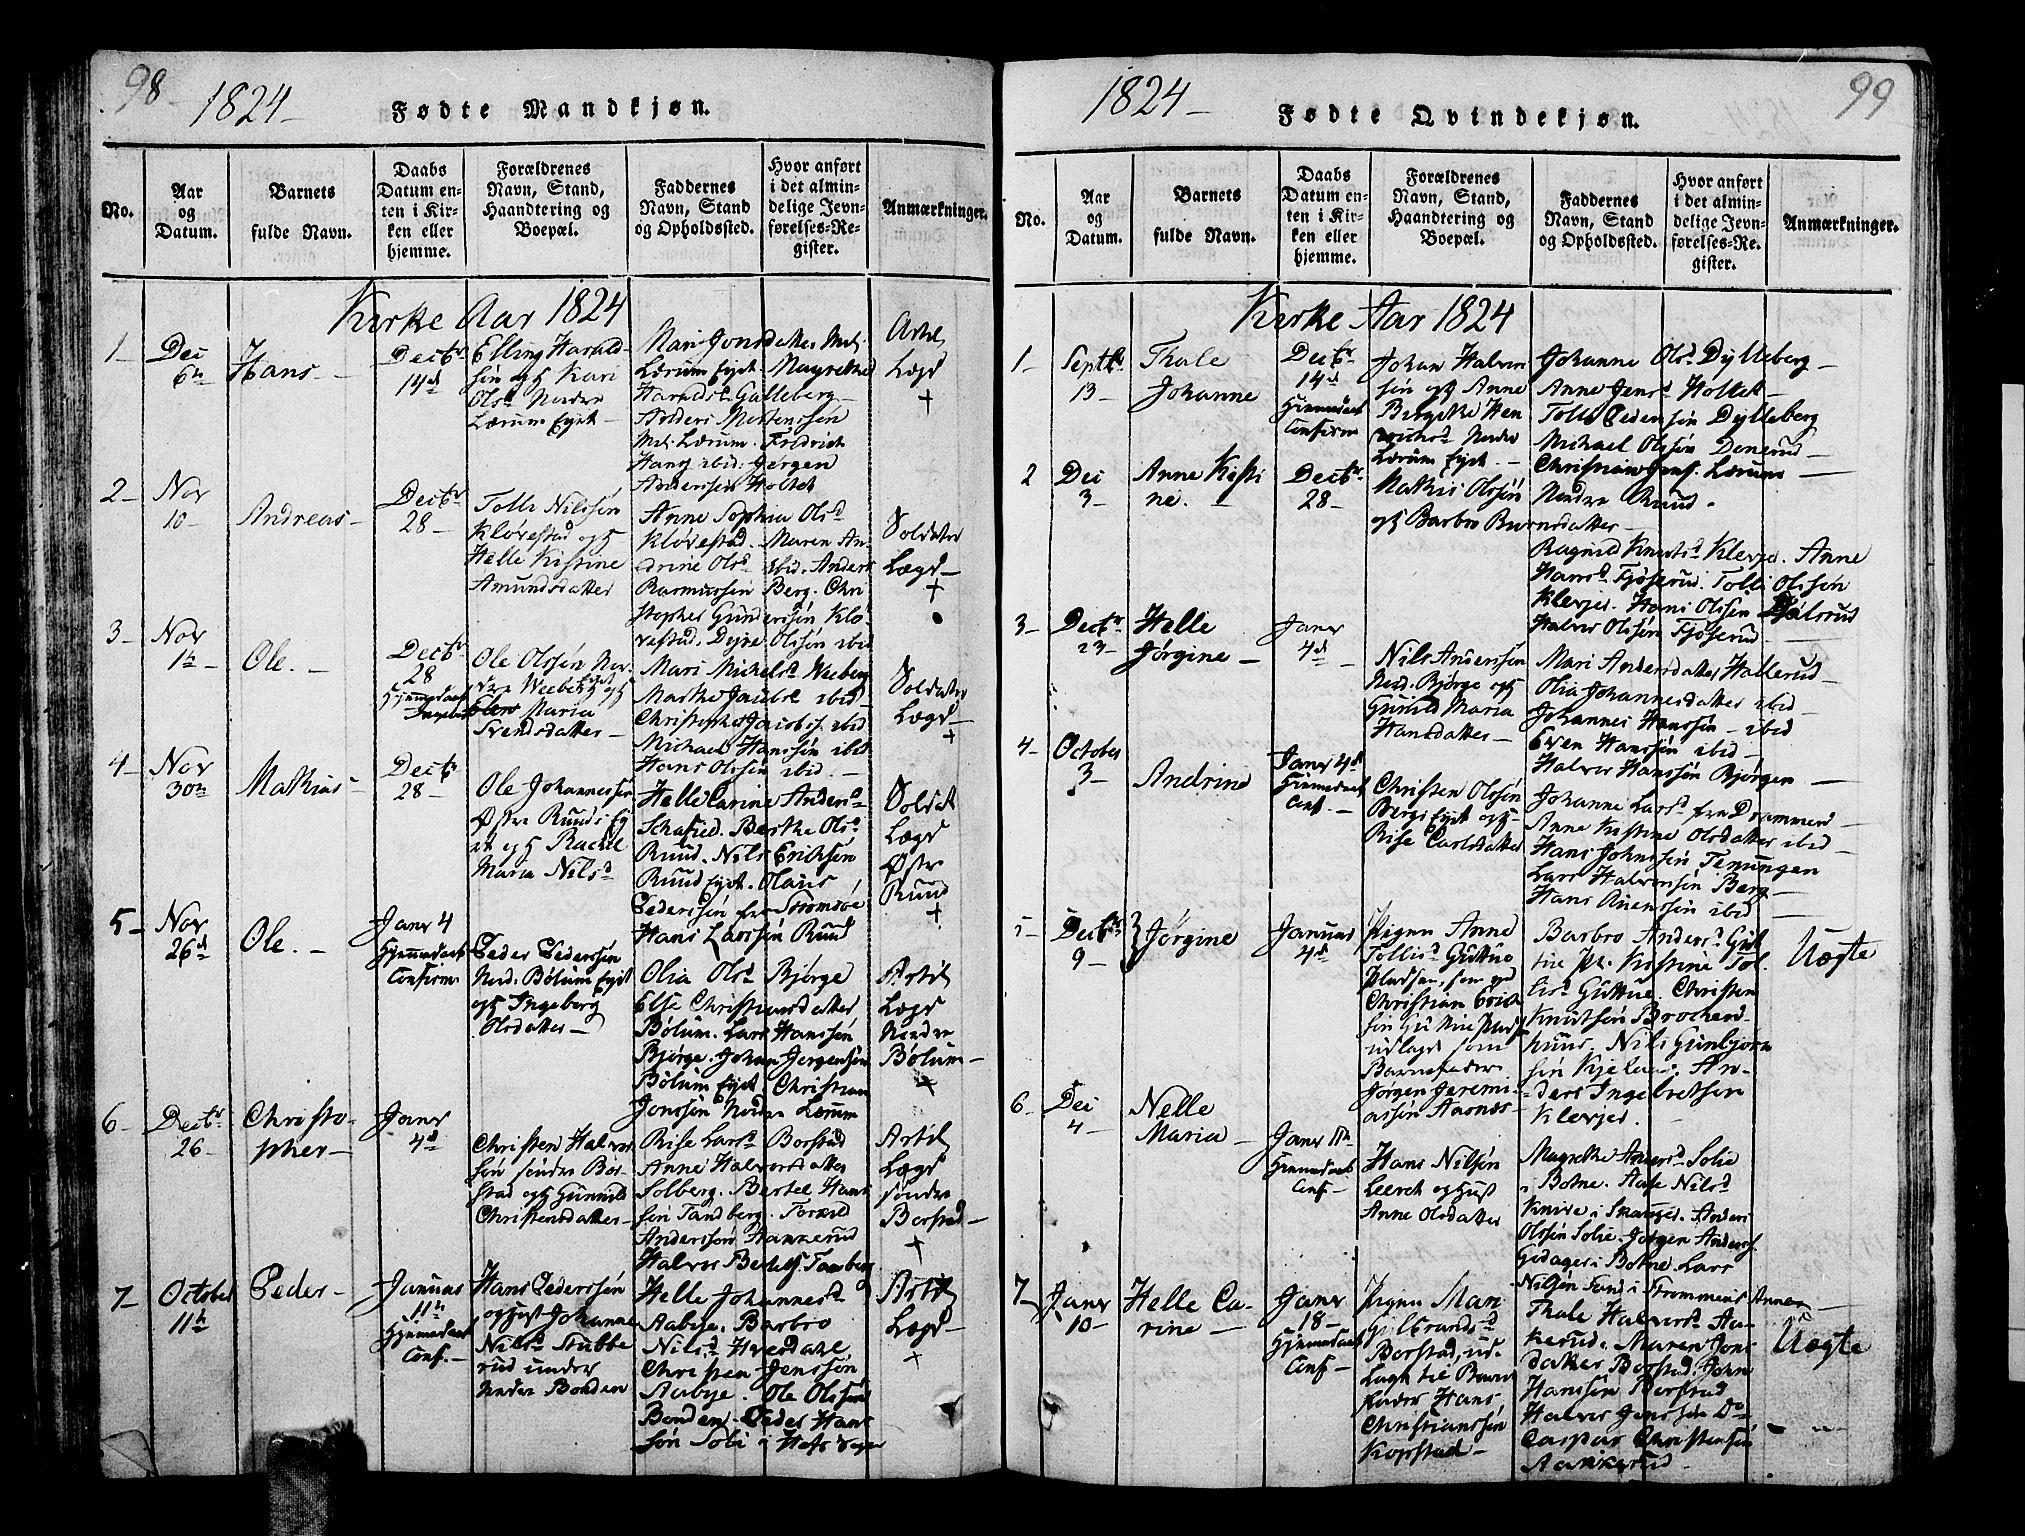 98
1824
Fødte Mandkjøn.
No.
Aar
og
Datum.
Barnets
fulde Navn.
Daabs
Datum en-
ten i Kir-
ken eller
hjemme.
Forældrenes
Navn, Stand,
Haandtering og
Boepæl.
Faddernes
Navn, Stand
og Opholdssted.
Hvor anført
i det almin-
delige Jevn-
førelses-Re-
gister.
Anmærkninger.
Kirke Aar 1824
1
Dec
6
Hans
Decbr
14d
Elling Harald-
søn og Kari
Olsd Nordre
Lærum Eyet
Mari Jonsdatter
Lærum Eyet. Magrethe
Haraldsd. Galleberg
Anders Mortenssøn
Lærum. Fridrich
Hans ibid. Jørgen
Anderssøn Holtet
Lægd
+
2
Nov
10
Andreas
Decbr
28
Tolle Nilssøn
Kløvestad og
Helle Kistine
Amundsdatter
Anne Sophia Olsd
Kløvestad. Maren An-
drine Olsd ibid. Anders
Rasmussøn Berg. Chri
stopher Gunderssøn Klø
vestad. Olssøn ibid
Soldater
Lægd
+
3
Nov
1
Ole
Decbr
28
Hjemmedøbt
Ole Olssøn Nor
dre Weeberg Eyet og
Maria
Svendsdatter
Mari Michelsd Weeberg
Marthe Jacobsd ibid
Christopher Jacobs. ibid
Michael Hanssøn ibid
Hans Olssøn ibid
Soldater
Lægd
+
4
Nov
30
Mathias
Decbr
28
Ole Johannessøn
Østre Ruuds Ey
et og Rachel
Maria Nilsd
Helle Carine Andersd
Berthe Olsd
Ruud. Nils Erikssøn
Ruud Eyet. Olaus
Pederssøn fra Strømsøe
Hans Larssøn Ruud
Soldat
Lægd
Østr
Ruud
+
5
Nov
26d
Ole
Janr 4
Hjemmedøbt
Confirm
Peder Pederssøn
Nord. Bølum Eyet
og Ingeborg
Olsdatter
Olia Olsd Bjørge
Else Christiansdatter
Bølum. Lars Hanssøn
Bjørge. Johan Jørgenssøn
Bølum Eyet. Christian
Jonssøn Nordre Lærum
Artil
Lægd
Nordre
Bølum
+
6
Decbr
26
Christo-
pher
Janr
4d
Christen Halvor
søn søndre Bor-
stad og Gunnild
Christensdatter
Rise Larsd Borstad
Anne Halvorsdatter
Solberg. Bertel Hans
søn Tandberg. Torald
Anderssøn Hankerud
Halvor Bertels. Tanberg
Artil
Lægd
søndre
Borstad
+
7
October
11
Peder
Januar
11
Hjemmedøbt
Conf.
Hans Pederssøn
og Hust Johanne
Nilsd Stubbe
rud under
Nedre Bonden
Helle Johannesd
Aabye. Barbro
Nilsd Hvesdahl
Christen Jenssøn
Aabye. Ole Olssøn
Bonden. Peder Hans
søn Solie i Hof
Artil
Lægd
+
1824
Fødte Qvindekjøn.
99
No.
Aar
og
Datum.
Barnets
fulde Navn.
Daabs
Datum en-
ten i Kir-
ken eller
hjemme.
Forældrenes
Navn, Stand,
Haandtering og
Boepæl.
Faddernes
Navn, Stand
og Opholdssted.
Hvor anført
i det almin-
delige Jevn-
førelses-Re-
gister.
Anmærkninger.
Kirke Aar 1824
1
Septbr
13
Thale
Johanne
Decbr
14d
Hjemmedøbt
Confirm
Johan Halvor
søn og Anne
Birgethe Hen
richsd Nordre
Lærum Eyet
Johanne Olsd Dylleberg
Anne Jensd Holtet
Tolle Pederssøn Dylleberg
Michael Olssøn Donerud
Christian Jens. Lærum
2
Dec
3
Anne Kisti
ne.
Decbr
28
Mathis Olssøn
og Barbro Burnsdatter
Nordre Ruud.
Ragnild Knutsd Klevjer. Anne
Hansd Fjøserud. Tolli Olssøn
Klevjer. Hans Olssøn
Halvor Olssøn Fjøserud
3
Decbr
23
Helle
Jørgine
Janr
4d
Nils Anderssøn
Ned. Bjørge og
Gunild Maria
Hansdatter
Mari Andersdatter Hallerud
Olia Johannesdatter ibid
Johannes Hanssøn ibid
Even Hanssøn ibid
Halvor Hanssøn Bjørgen
4
October
3
Andrine
Janr 4d
Hjemmedøbt
Conf.
Christen Olssøn
Bergs Eyet og
Rise Carlsdatter
Johanne Larsd fra Drammen
Anne Kistine Olsdatter ibid
Hans Johnssøn Temungen
Lars Halvorssøn Berg
Hans Auenssøn ibid
5
Decbr
9
Jørgine
Januar
4d
Pigen Anne
Tollisd Guttue
pladsen, som
Christian Erich
søn
udlagt som
Barnefader
Jørgen Jeremi
assøn Aarnæs
Barbro Andersd Gut
tue pl. Kistine Tol
lisd Guttue. Christen
Knutsøn Brochen
huus. Nils Gunbjørn
søn Kjelaas. An-
ders Ingebretsen
Klevjer.
Uægte
6
Dec
4
Nelle
Maria
Janr 11
Hjemmedøbt
Conf
Hans Nilsøn
Leeret og Hust
Anne Olsdatter
Magrethe Andersd Solie
i Botne. Aase Nilsd
Knive i Skauger. Anders
Olssøn Solie. Jørgen Anders.
i Botne. Lars
Nilssøn Fand i Strømmens Annex
7
Janr
10
Helle Ca-
rine
Janr
18
Hjemmedøbt
Conf
Pigen Mari
Gulbrandsd
Borstad, ud-
lagt til Barne
fader Hans
Christianssøn
Kopstad
Thale Halvorsd Aa-
kerud. Maren Jons
datter Borstad. John
Hanssøn Borstad
Halvor Jenssøn Do
Caspar Christensøn
Aankerud
Uægte